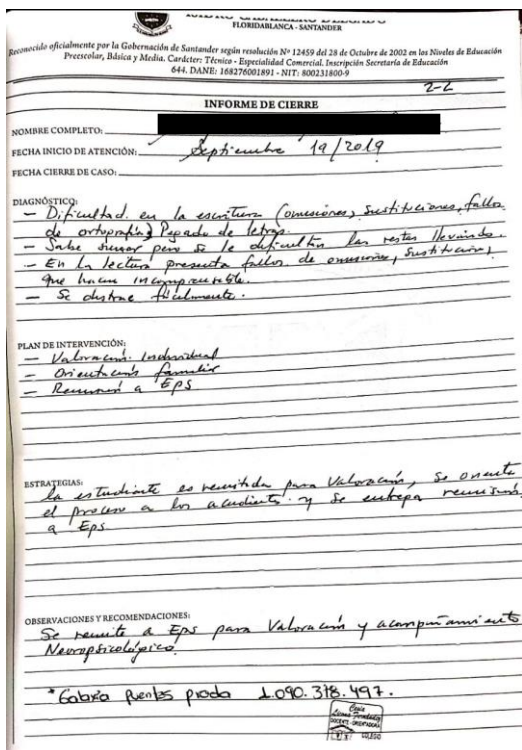 FLORIDABLANCA - SANTANDER
Reconocido oficialmente por la Gobernación de Santander según resolución Nº 12459 del 28 de Octubre de 2002 en los Niveles de Educación
Preescolar, Básica y Media. Carácter: Técnico - Especialidad Comercial. Inscripción Secretaría de Educación
644. DANE: 168276001891 - NIT: 800231800-9
2-2
INFORME DE CIERRE
NOMBRE COMPLETO:
FECHA INICIO DE ATENCIÓN: Septiembre 19/2019
FECHA CIERRE DE CASO:
DIAGNÓSTICO:
- Dificultad en la escritura (omisiones, sustituciones, fallos
de ortografía) Pegado de letras.
- Sabe sumar pero se le dificultan las restas llevando.
- En la lectura presenta fallos de omisiones, sustitución,
que hacen incomprensible.
- Se distrae fácilmente.
PLAN DE INTERVENCIÓN:
- Valoración individual
- Orientación familiar
- Remisión a EPS
ESTRATEGIAS:
la estudiante es remitida para Valoración, se orienta
el proceso a los acudientes y se entrega remisión
a Eps
OBSERVACIONES Y RECOMENDACIONES:
Se remite a Eps para Valoración y acompañamiento
Neuropsicológico.
* puentes prada 1.090.378.497.
DOCENTE - ORIENTADORA